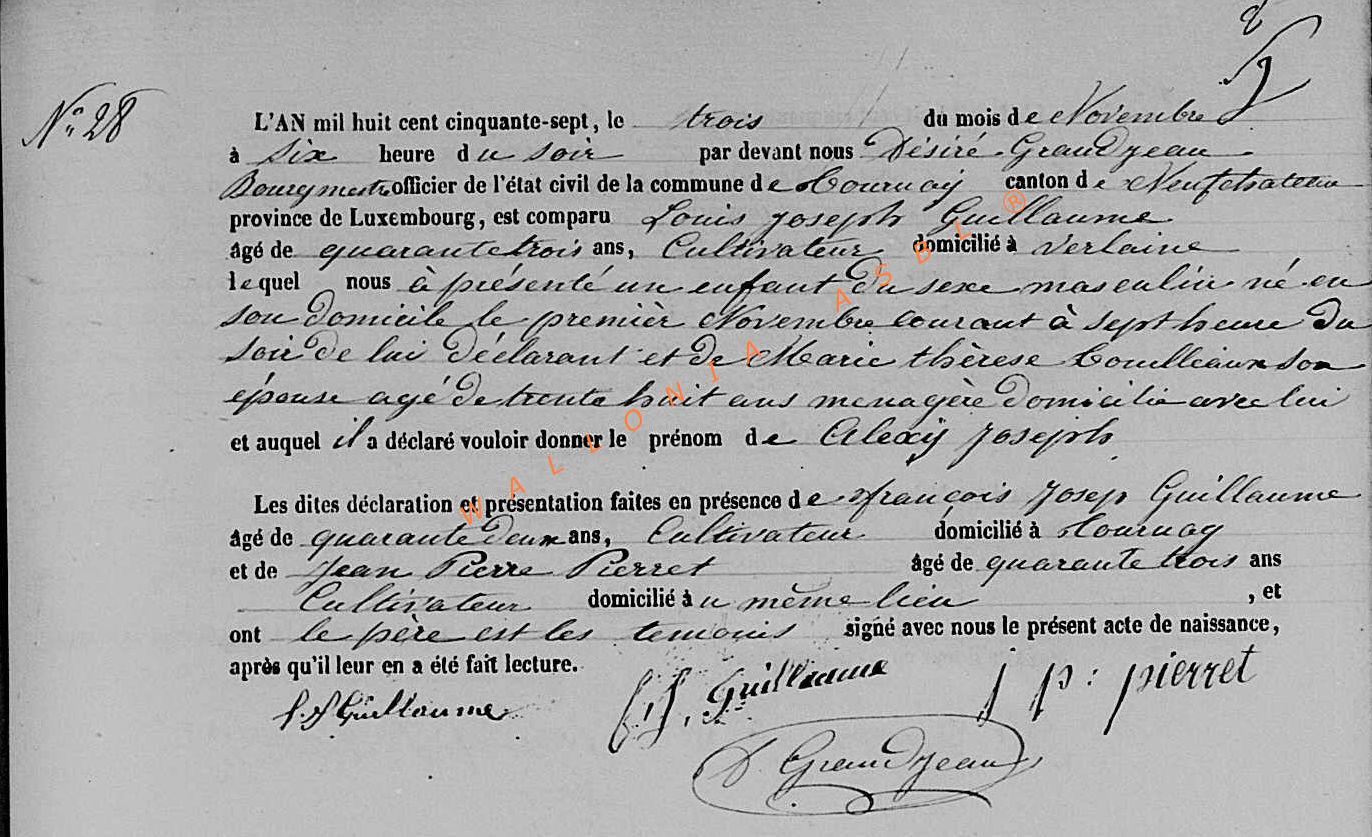 8
N° 28
L'AN mil huit cent cinquante-sept, le trois du mois de Novembre
à Six heure du soir par devant nous Désiré Grandjean
Bourgmestre officier de l'état civil de la commune de Tournay canton de Neufchateau
province de Luxembourg, est comparu Louis Joseph Guillaume
âgé de quarante trois ans, Cultivateur domicilié à Verlaine
lequel nous à présenté un enfant du sexe masculin né en
son domicile le premièr Novembre courant à sept heure du
soir de lui déclarant et de Marie thérese Couilleaux son
épouse agé de trente huit ans menagère domicilié avec lui
et auquel il a déclaré vouloir donner le prénom de Alexij Joseph
Les dites déclaration et présentation faites en présence de françois Josep Guillaume
âgé de quarante deux ans, Cultivateur domicilié à Tournay
et de Jean Pierre Pierret âgé de quarante trois ans
Cultivateur domicilié àu même lieu , et
ont le père est les temouis signé avec nous le présent acte de naissance,
après qu'il leur en a été fait lecture.
Guillaume j p: pierret
Guillaume
D. Grandjean
WALLONIA ASBL ®